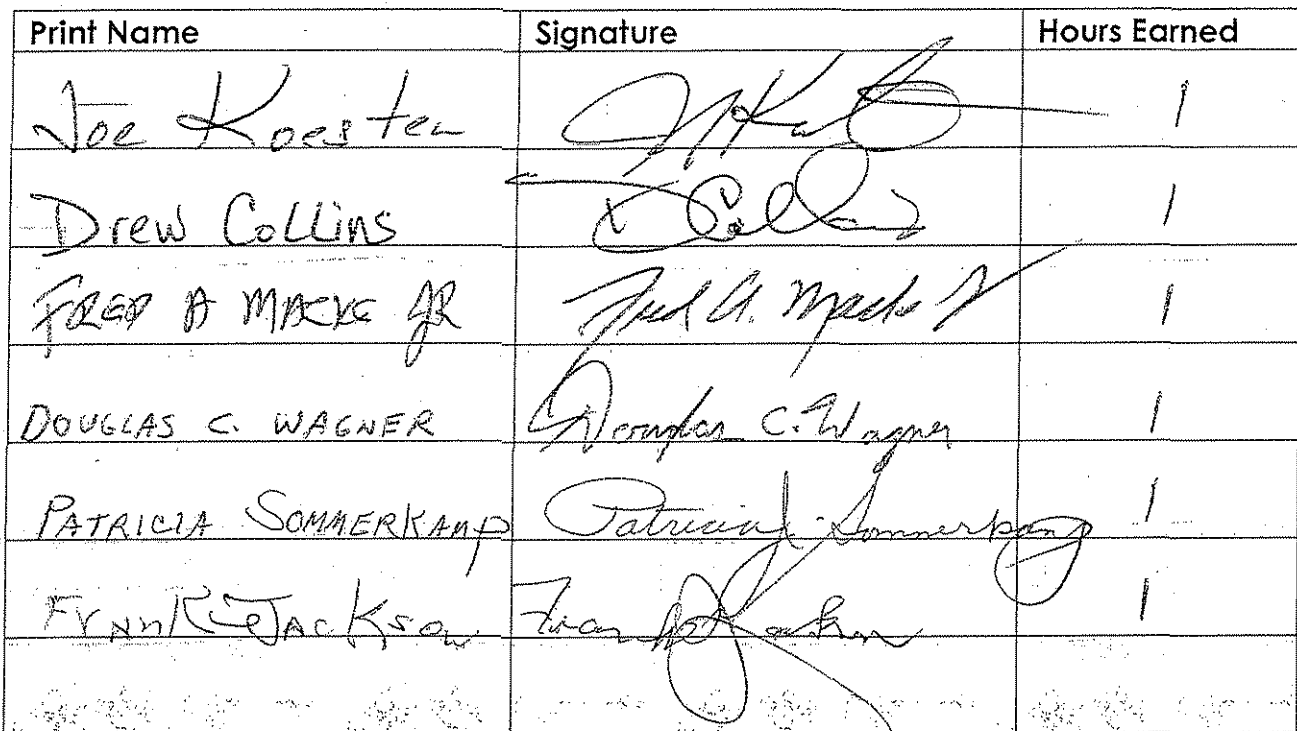 Print Name Signature Hours Earned
Joe Koester 1
Drew Collins D Collins 1
FRED A MACKE JR Fred A. Macke Jr 1
DOUGLAS C. WAGNER Douglas C. Wagner 1
PATRICIA SOMMERKAMP Patricia J. Sommerkamp 1
FrAnK JAcKson Frank Jackson 1